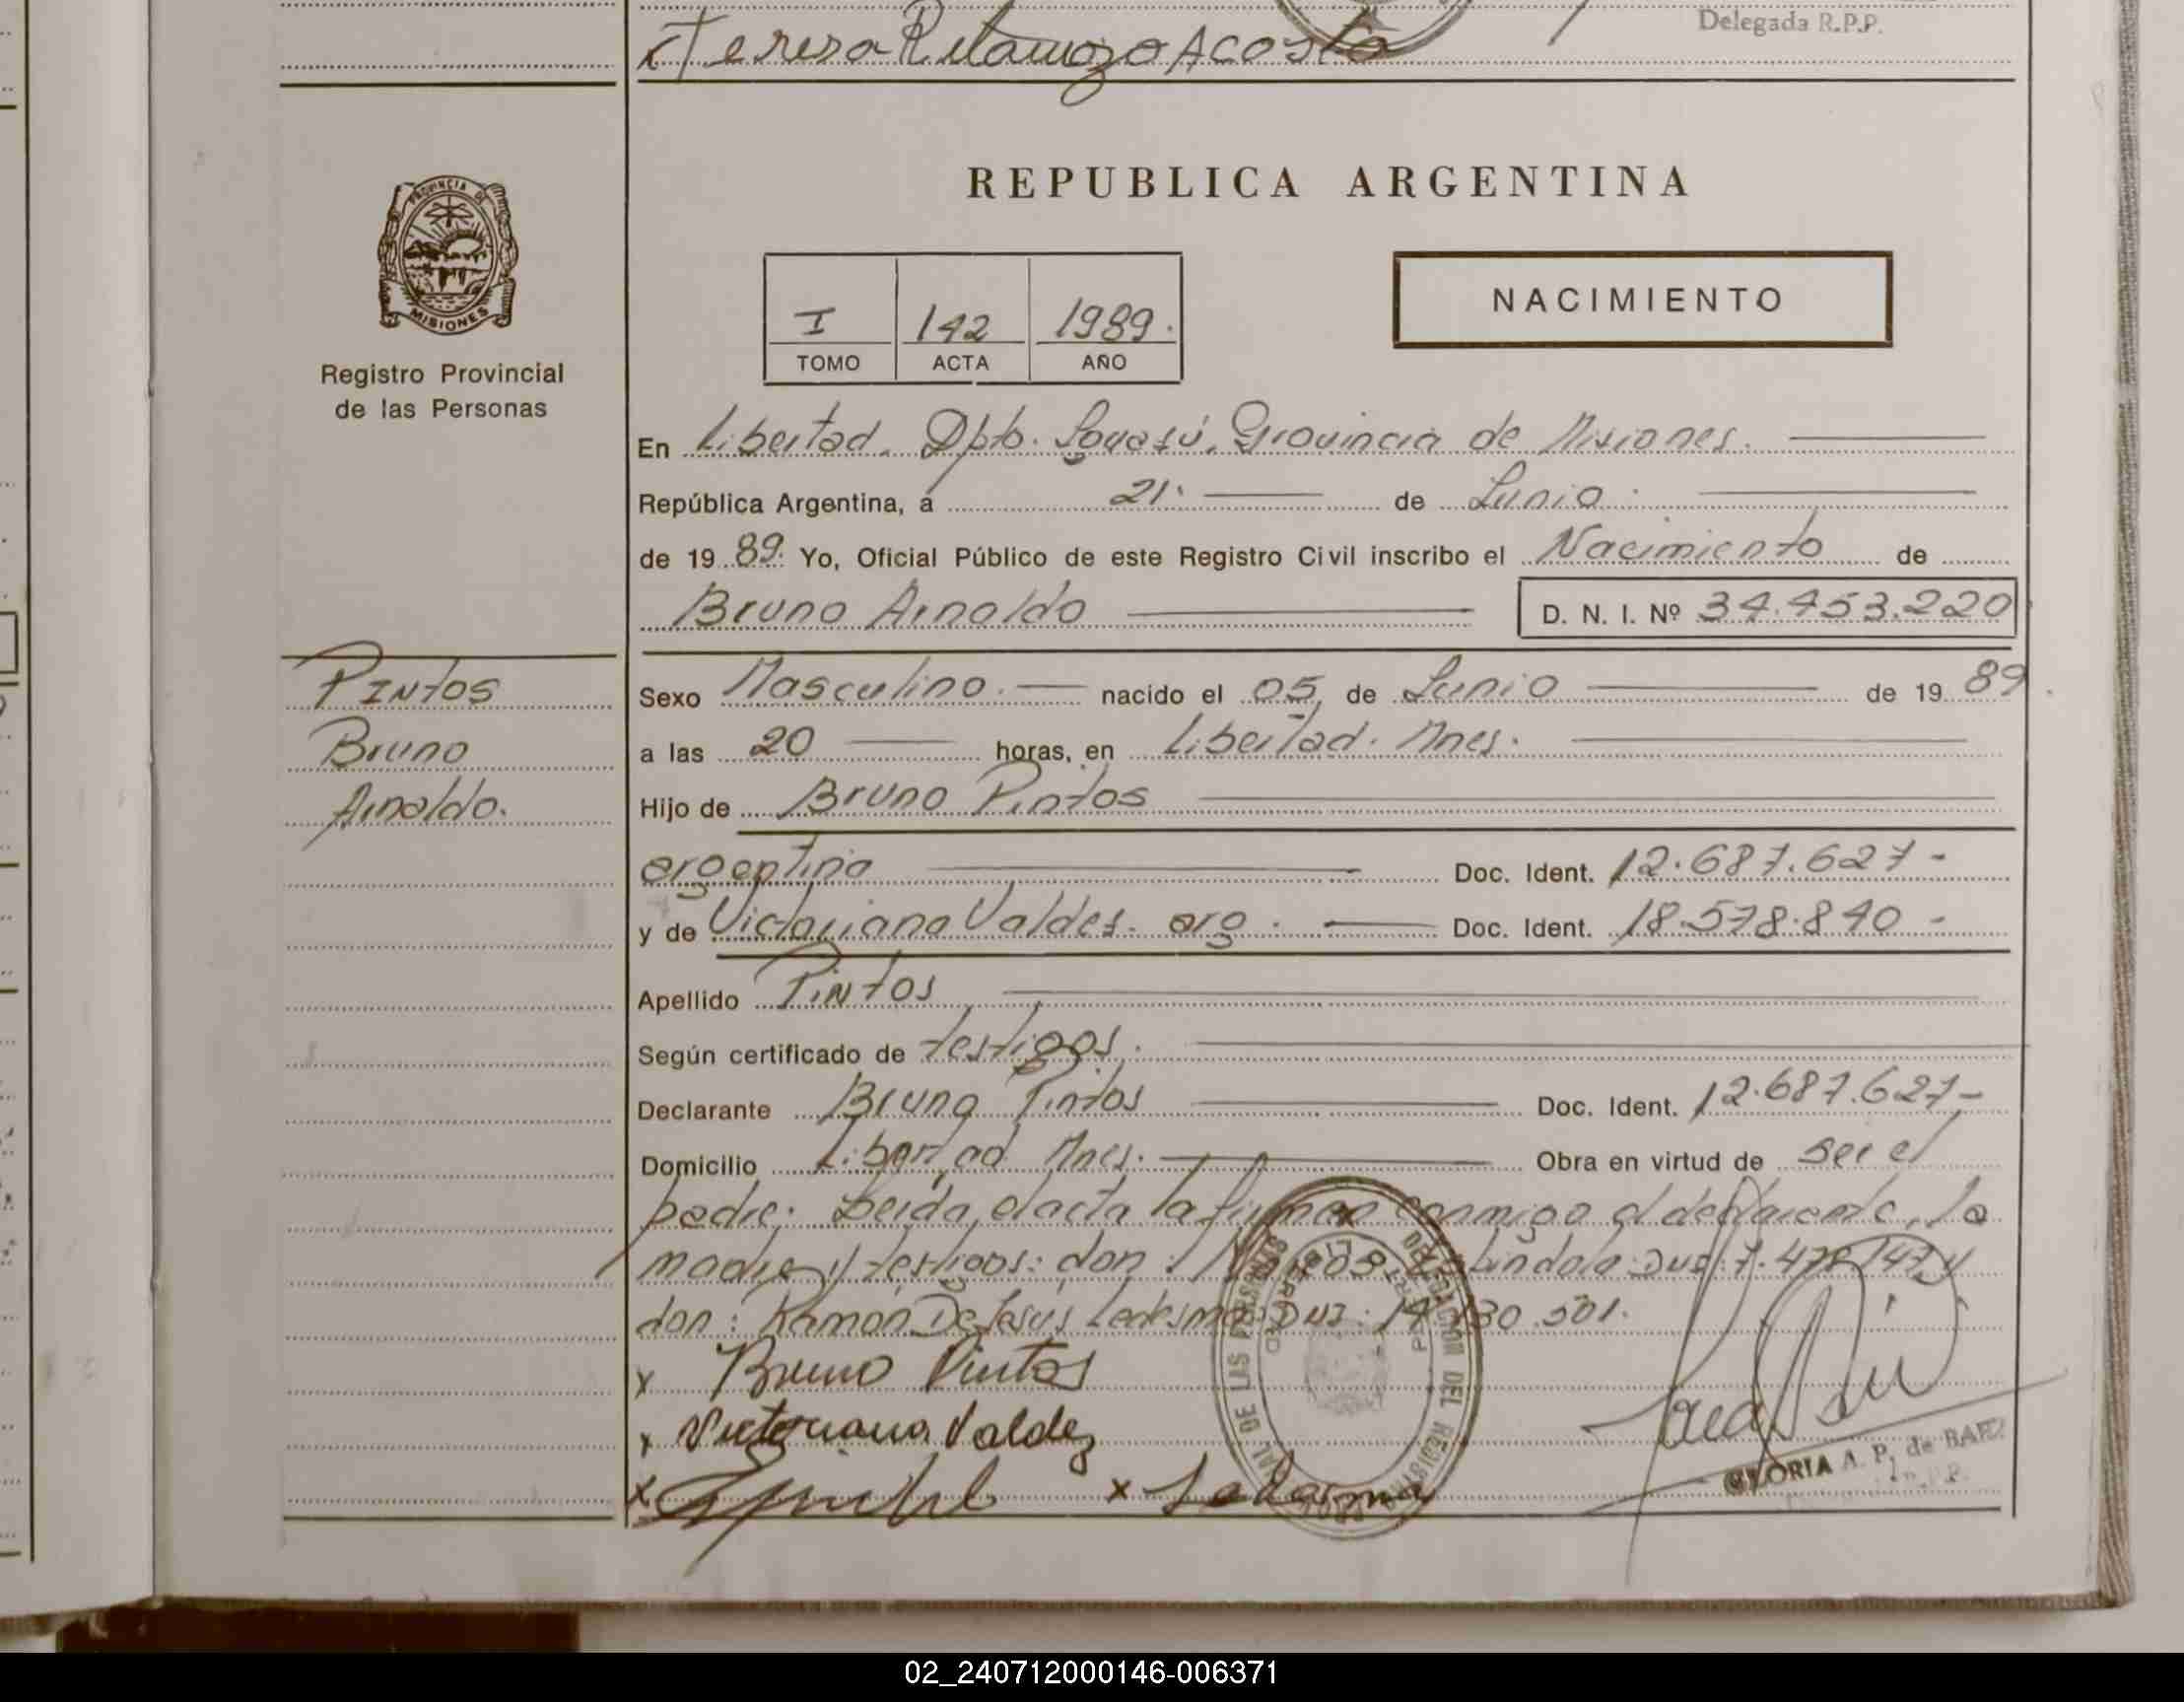 Delegada R.P.P.
Teresa Retamozo Acosta
PROVINCIA DE
MISIONES
Registro Provincial
de las Personas
REPUBLICA ARGENTINA
I 142 1989.
TOMO ACTA AÑO
NACIMIENTO
En Libertad. Dpto. Iguazú, Provincia de Misiones.
República Argentina, a 21. de Junio.
de 1989. Yo, Oficial Público de este Registro Civil inscribo el Nacimiento de
Bruno Arnaldo D. N. I. Nº 34.453.220
Pintos
Bruno
Arnaldo.
Sexo Masculino. nacido el 05, de Junio de 1989.
a las 20 horas, en Libertad. Mnes.
Hijo de Bruno Pintos
argentina Doc. Ident. 12.687.627-
y de Victoriana Valdes. arg. Doc. Ident. 18.578.840-
Apellido Pintos
Según certificado de testigos.
Declarante Bruno Pintos Doc. Ident. 12.687.627,-
Domicilio Libertad Mnes. Obra en virtud de ser el
padre. Leida el acta la firman conmigo el declarante, la
madre y testigos: don:
don: Ramón De Jesús Ledesma
x Bruno Pintos
x Victoriana Valdez
x x Ledesma
DELEGACION DEL REGISTRO PROVINCIAL DE LAS PERSONAS
LIBERTAD
GLORIA A. P. de BAEZ